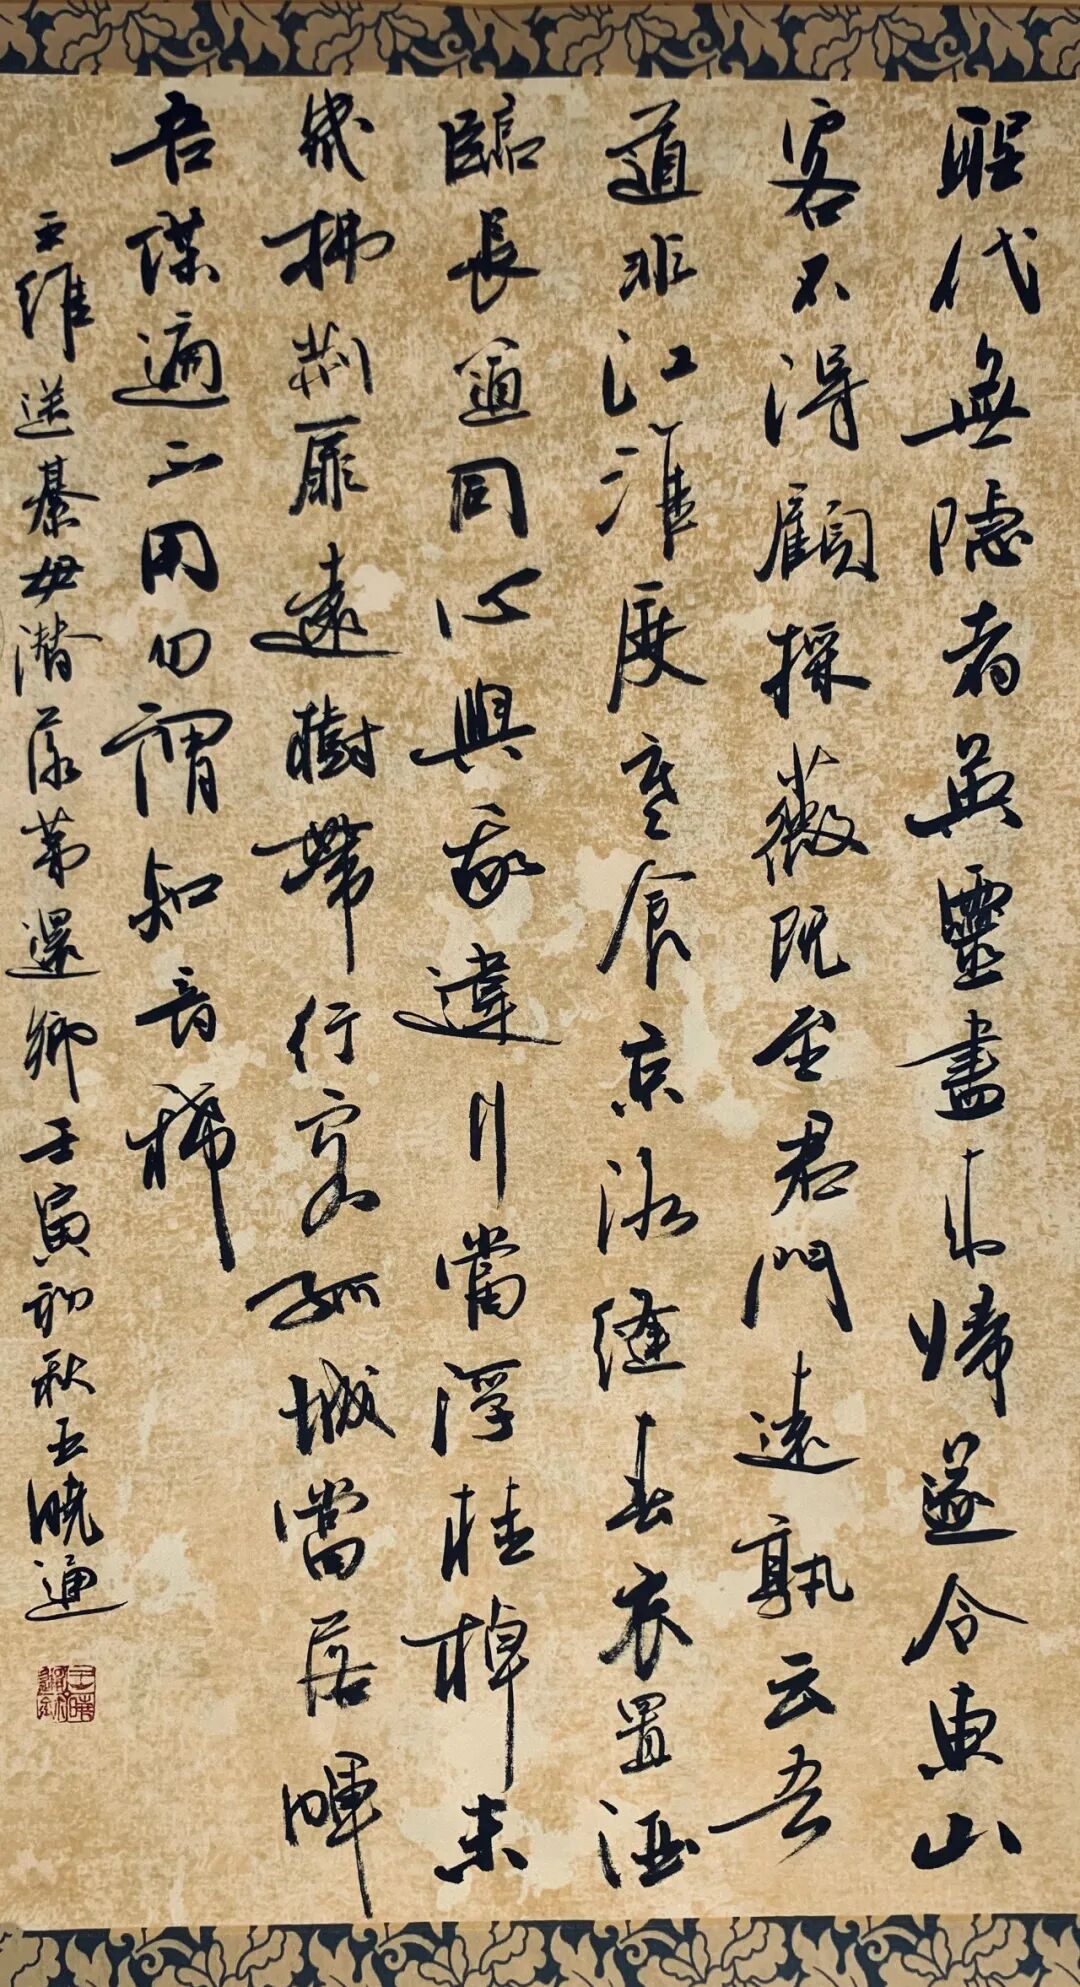 聖代無隱者英靈盡來歸遂令東山
客不得顧採薇既至君門遠孰云吾
道非江淮度寒食京洛縫春衣置酒
臨長道同心與我違行當浮桂棹未
幾拂荊扉遠樹帶行客孤城當落暉
吾謀適不用勿謂知音稀
王維送綦毋潛落第還鄉壬寅初秋王曉通